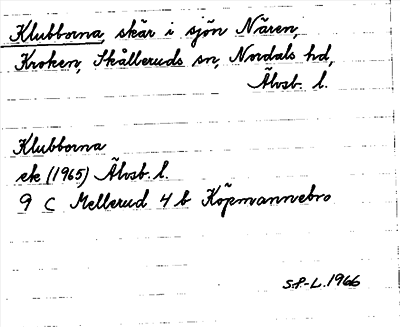 Klubborna, skär i sjön Nären,
Kroken, Skålleruds sn, Nordals hd,
Älvsb. l.
Klubborna
ek (1965) Älvsb. l.
9 C Mellerud 4 b Köpmannebro
S.F-L. 1966